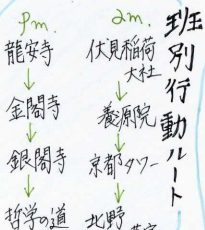 班別行動ルート
a.m.
伏見稲荷
大社
↓
養源院
↓
京都タワー
↓
北野
p.m.
龍安寺
↓
金閣寺
↓
銀閣寺
↓
哲学の道